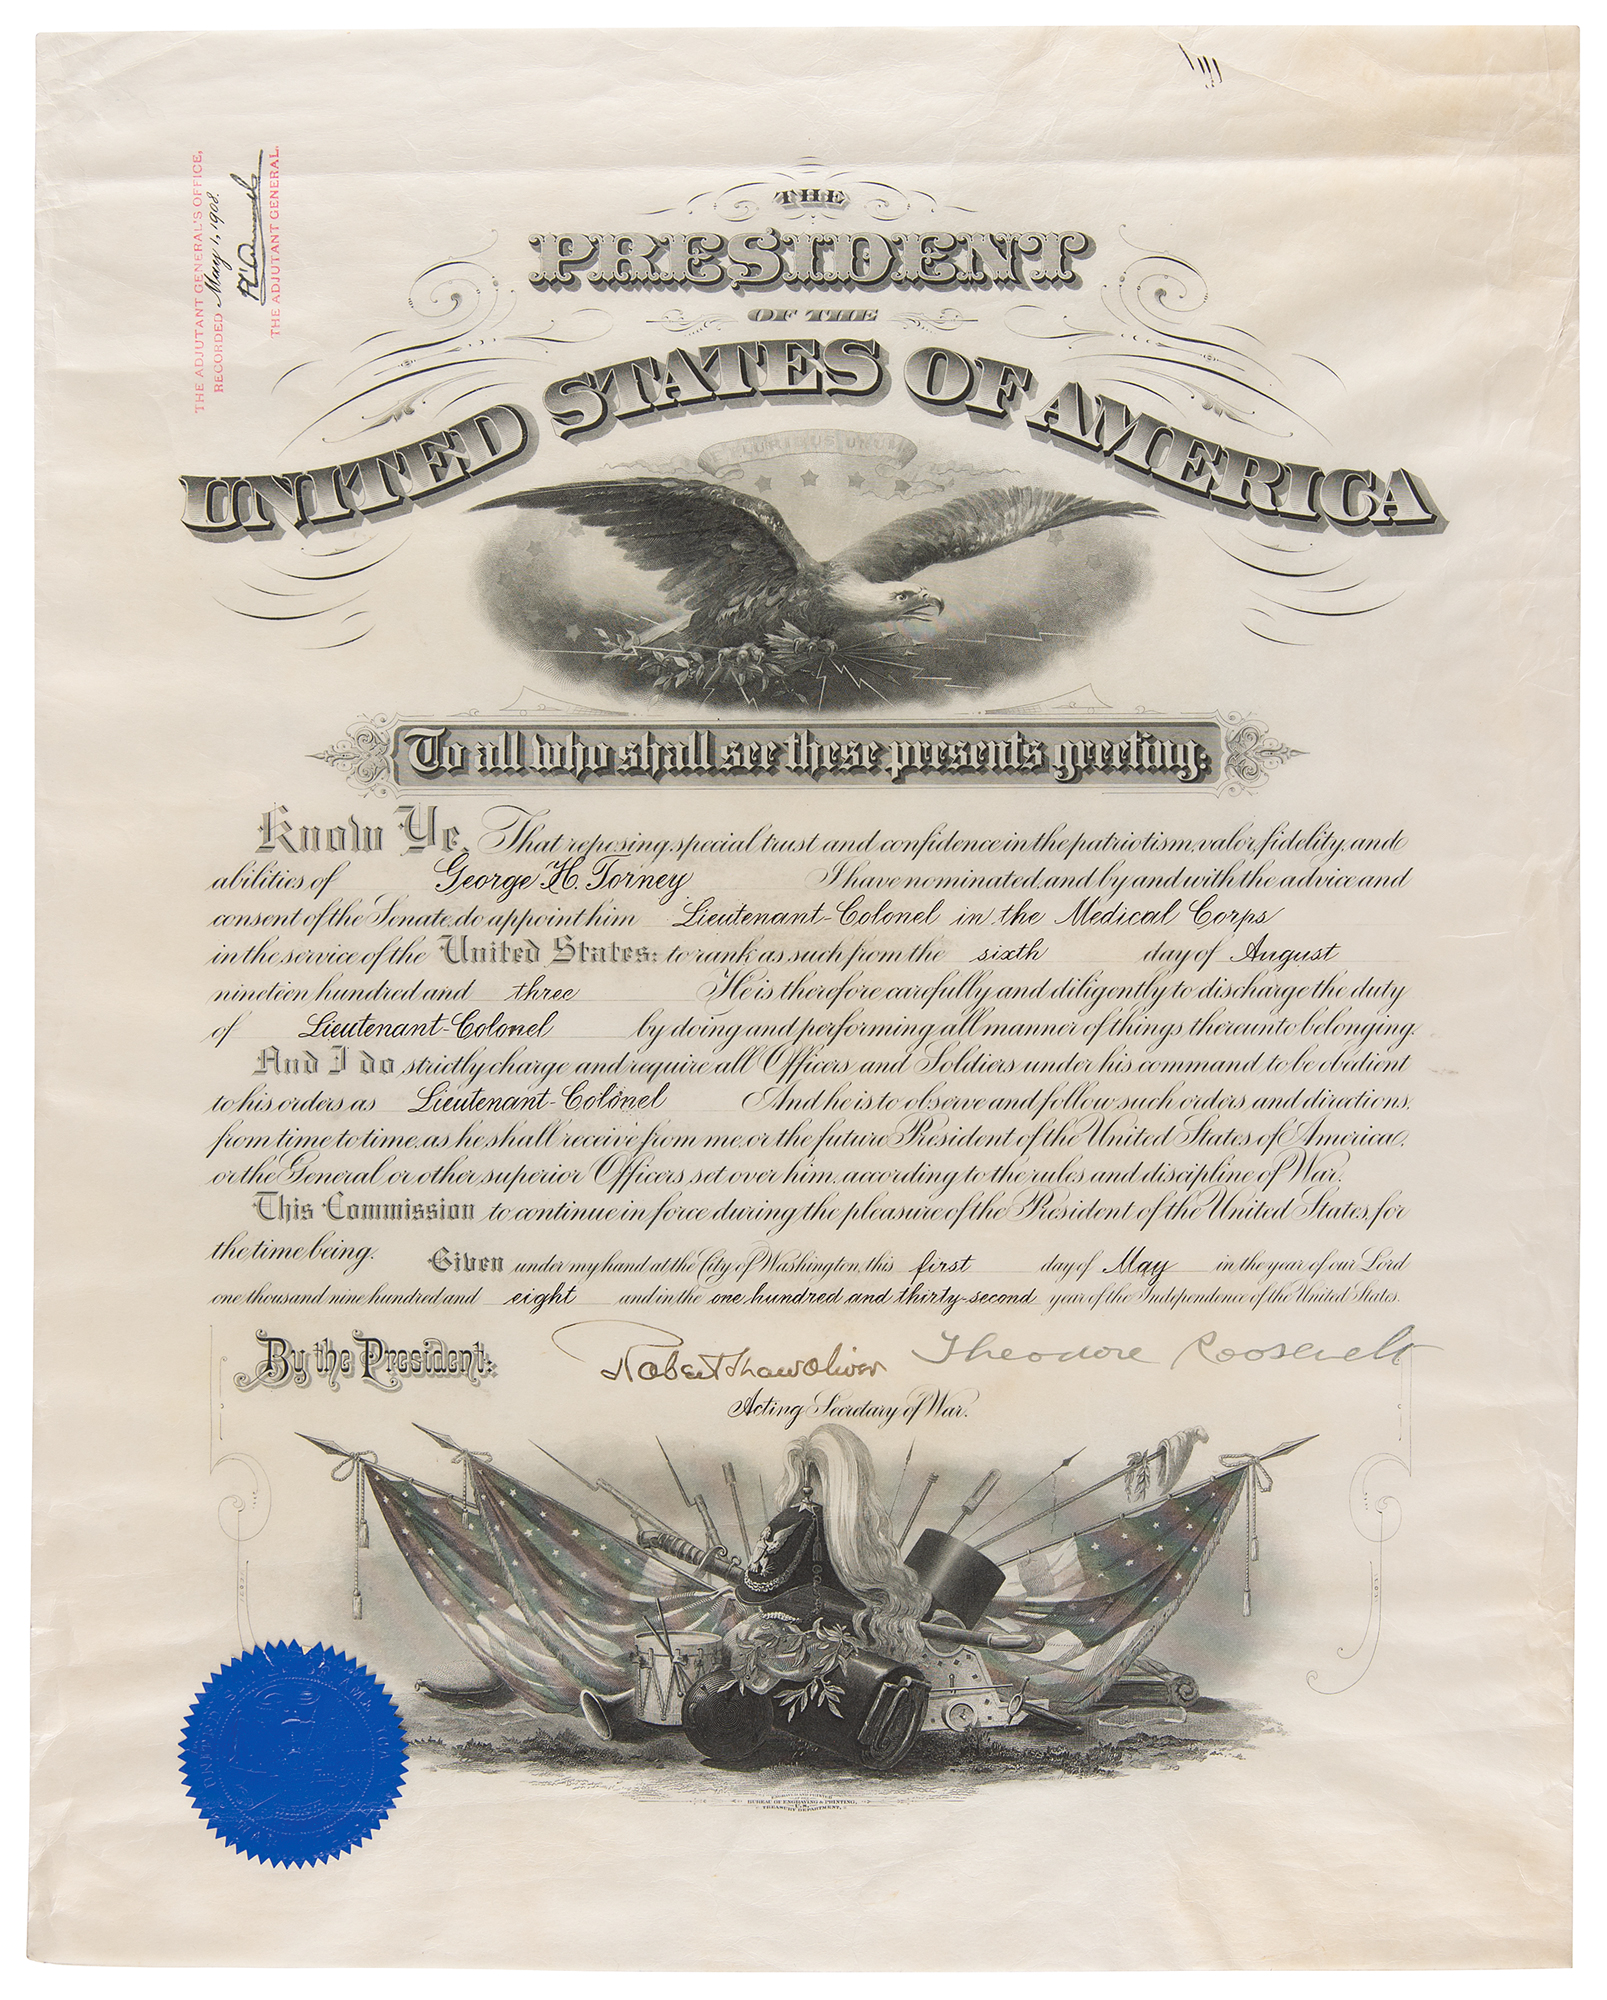 THE ADJUTANT GENERAL'S OFFICE,
RECORDED May 1, 1908.
THE ADJUTANT GENERAL.
THE
PRESIDENT
OF THE
UNITED STATES OF AMERICA
E PLURIBUS UNUM
To all who shall see these presents greeting:
Know Ye, That reposing special trust and confidence in the patriotism, valor, fidelity, and
abilities of George H. Torney I have nominated, and by and with the advice and
consent of the Senate, do appoint him Lieutenant-Colonel in the Medical Corps
in the service of the United States: to rank as such from the sixth day of August
nineteen hundred and three He is therefore carefully and diligently to discharge the duty
of Lieutenant-Colonel by doing and performing all manner of things thereunto belonging.
And I do strictly charge and require all Officers and Soldiers under his command to be obedient
to his orders as Lieutenant-Colonel And he is to observe and follow such orders and directions,
from time to time, as he shall receive from me, or the future President of the United States of America,
or the General or other superior Officers set over him, according to the rules and discipline of War.
This Commission to continue in force during the pleasure of the President of the United States, for
the time being.
Given under my hand at the City of Washington, this first day of May in the year of our Lord
one thousand nine hundred and eight and in the one hundred and thirty-second year of the Independence of the United States.
By the President: Robert Shaw Oliver Theodore Roosevelt
Acting Secretary of War.
BUREAU OF ENGRAVING & PRINTING,
TREASURY DEPARTMENT.